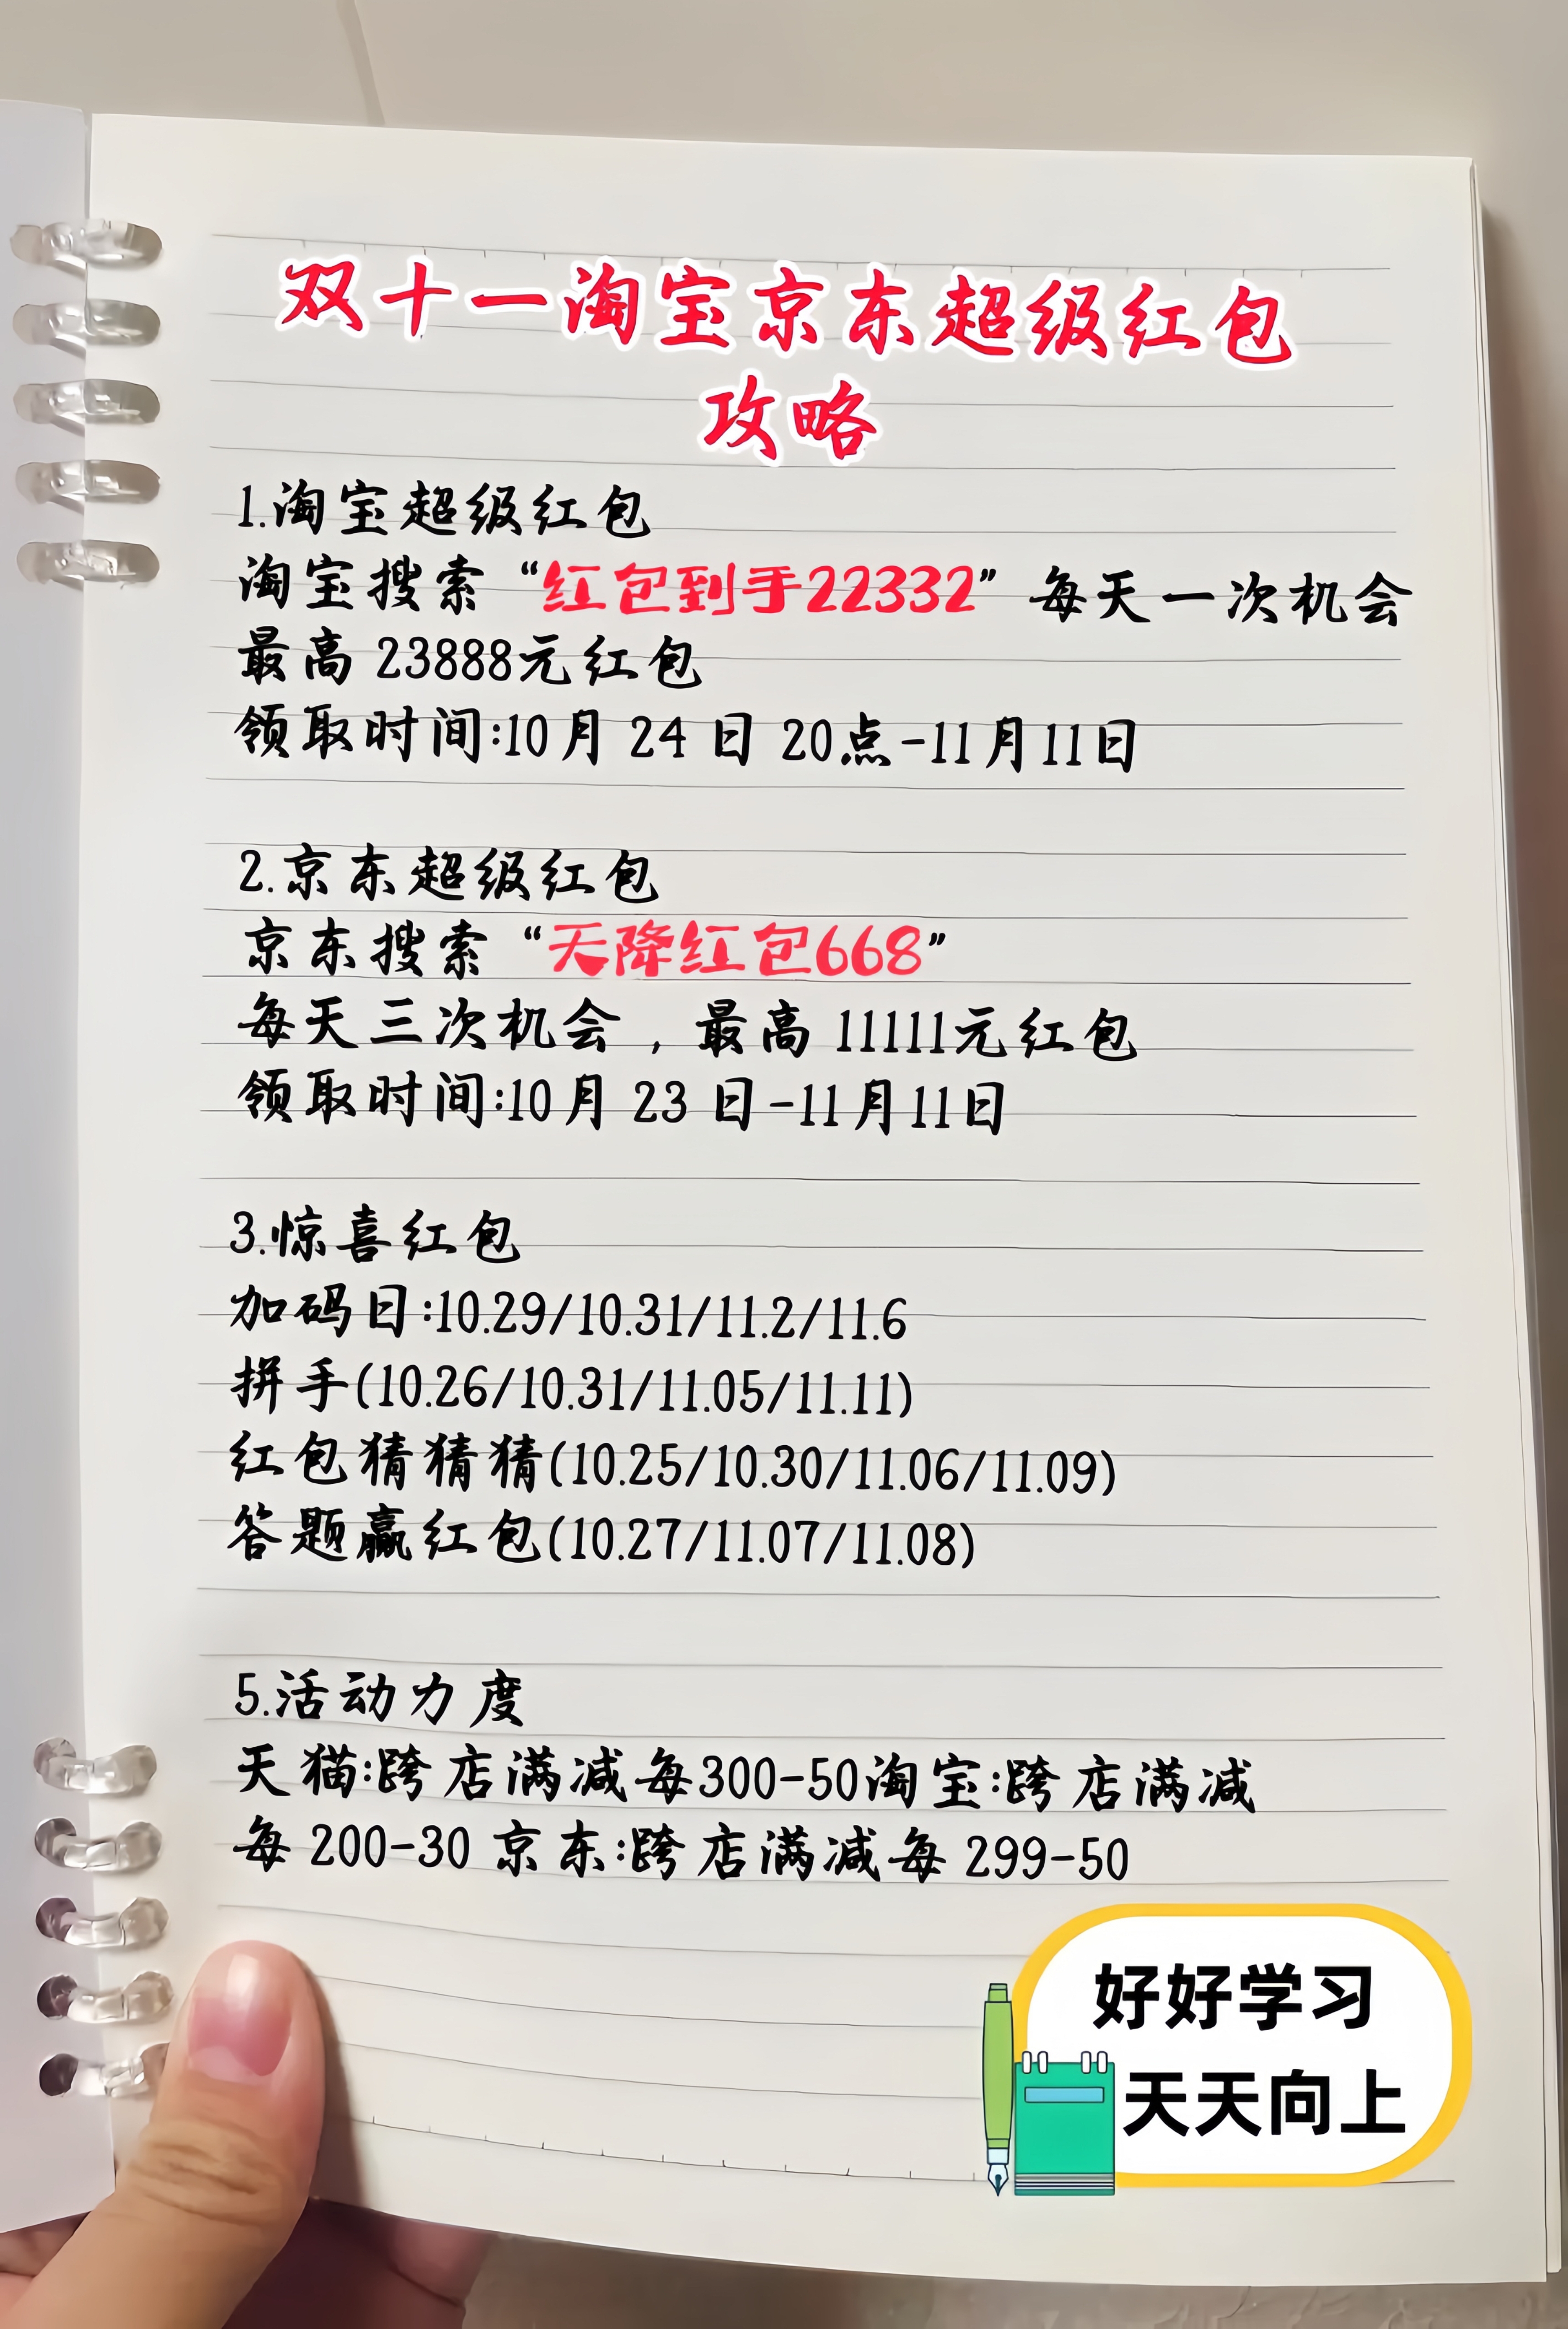 双十一淘宝京东超级红包
攻略
1.淘宝超级红包
淘宝搜索“红包到手22332”每天一次机会
最高 23888元红包
领取时间:10月 24 日 20点-11月11日
2.京东超级红包
京东搜索“天降红包668”
每天三次机会，最高 11111元红包
领取时间:10月 23 日-11月11日
3.惊喜红包
加码日:10.29/10.31/11.2/11.6
拼手(10.26/10.31/11.05/11.11)
红包猜猜猜(10.25/10.30/11.06/11.09)
答题赢红包(10.27/11.07/11.08)
5.活动力度
天猫:跨店满减每300-50淘宝:跨店满减
每 200-30 京东:跨店满减每 299-50
好好学习
天天向上